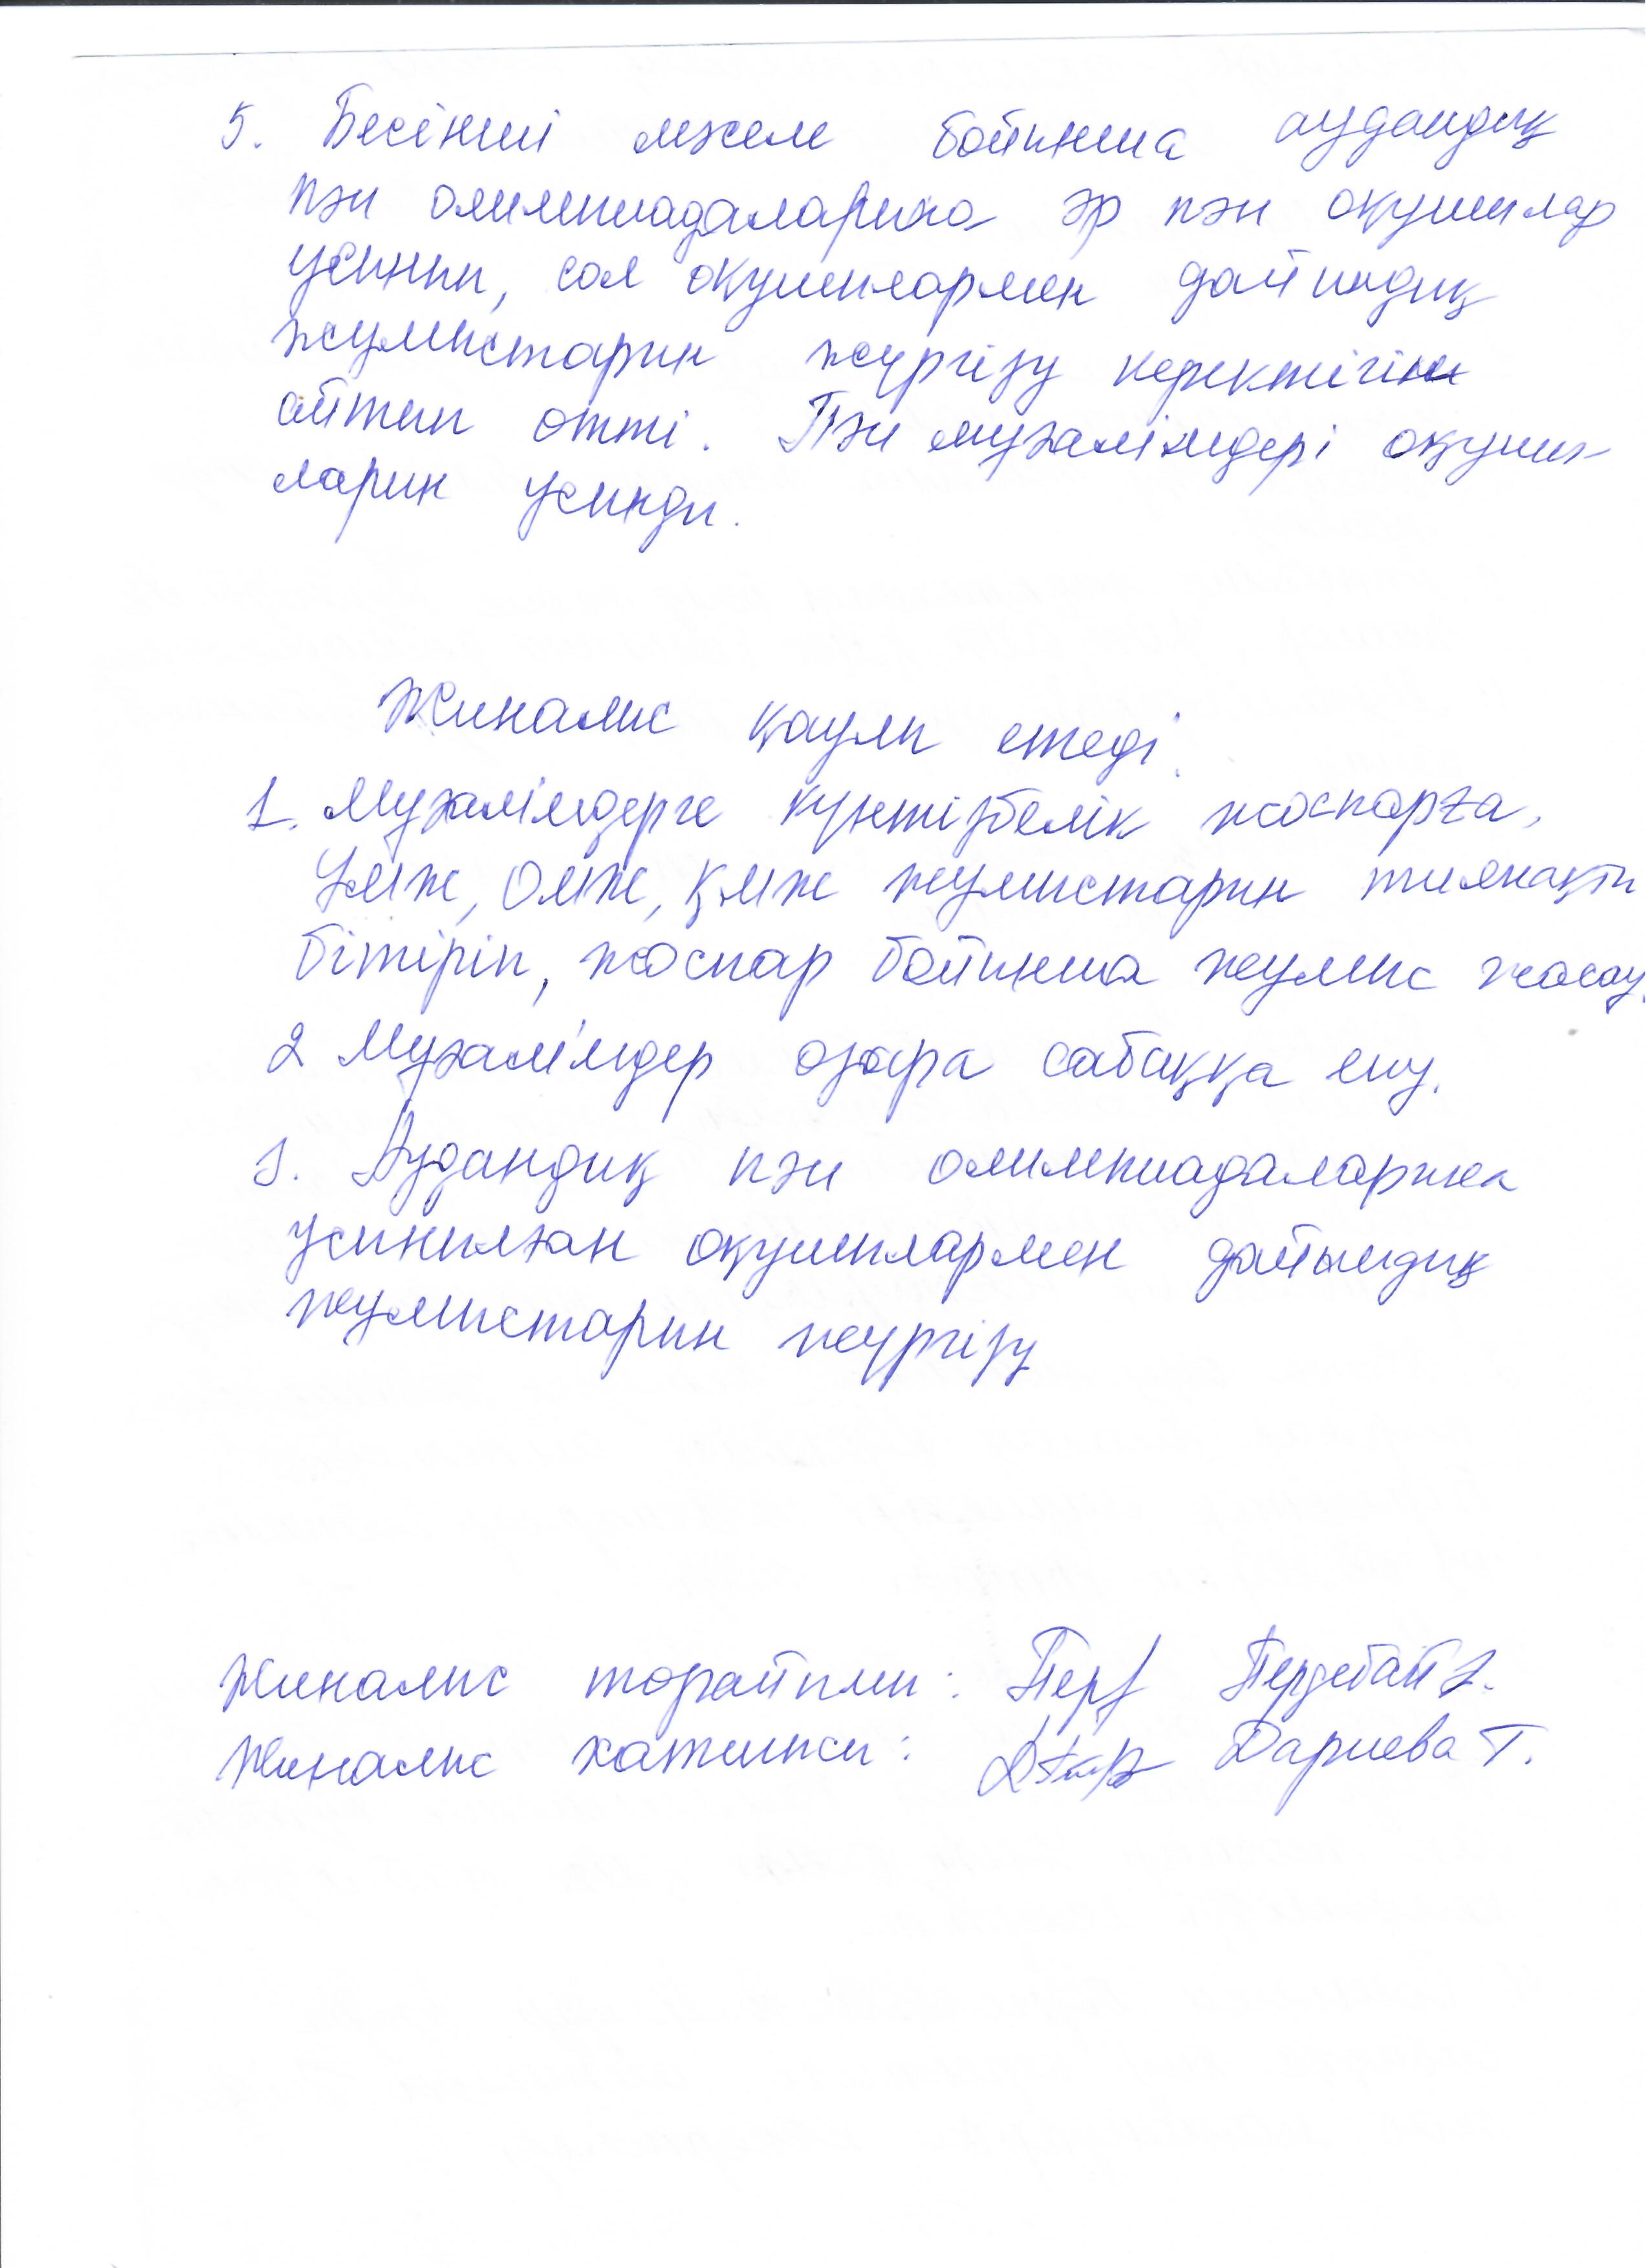 5. Бесінші мәселе бойынша аудандық
пән олимпиадаларына әр пән оқушылар
ұсынып, сол оқушылармен дайындық
жұмыстарын жүргізу керектігін
айтып өтті. Пән мұғалімдері оқушы-
ларын ұсынды.
Жиналыс қаулы етеді.
1. Мұғалімдерге күнтізбелік жоспарға,
ҰМЖ, ОМЖ, ҚМЖ жұмыстарын тиянақты
бітіріп, жоспар бойынша жұмыс жасау.
2 Мұғалімдер өзара сабаққа ену.
3. Аудандық пән олимпиадаларына
ұсынылған оқушылармен дайындық
жұмыстарын жүргізу
Жиналыс төрайымы: Перд Пердебай
Жиналыс хатшысы: Дариева Т.